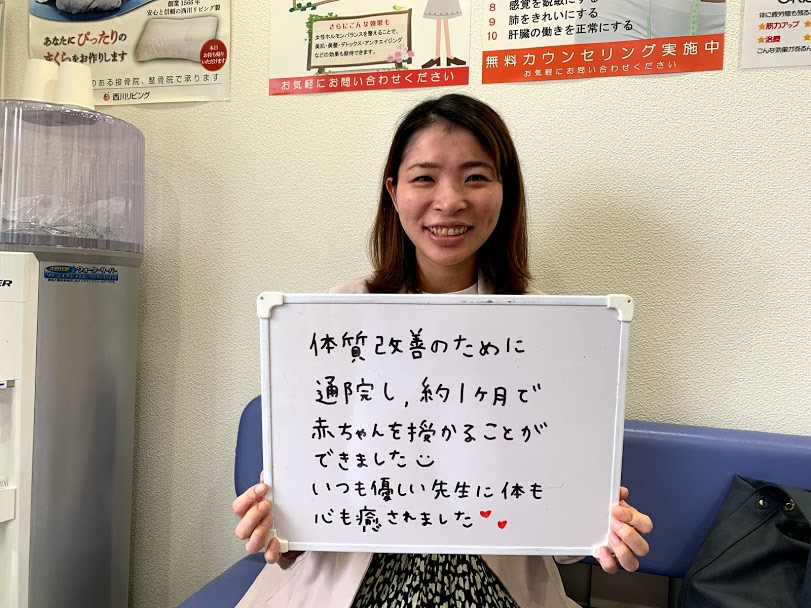 創業1566年
安心と信頼の西川リビング製
あなたにぴったりの
まくらをお作りします
本日
お持ち帰り
いただけます
のある接骨院、整骨院で承ります
西川リビング
さらにこんな効果も
女性ホルモンバランスを整えることで、
美肌・美髪・デトックス・アンチエイジング
などの効果も期待できます。
お気軽にお問い合わせください
8 感覚を鋭敏にする
9 肺をきれいにする
10 肝臓の働きを正常にする
無料カウンセリング実施中
お気軽にお問い合わせください
★筋力アップ
★治療
こんな効果が
ウォーターサーバー
体質改善のために
通院し,約1ヶ月で
赤ちゃんを授かることが
できました
いつも優しい先生に体も
心も癒されました